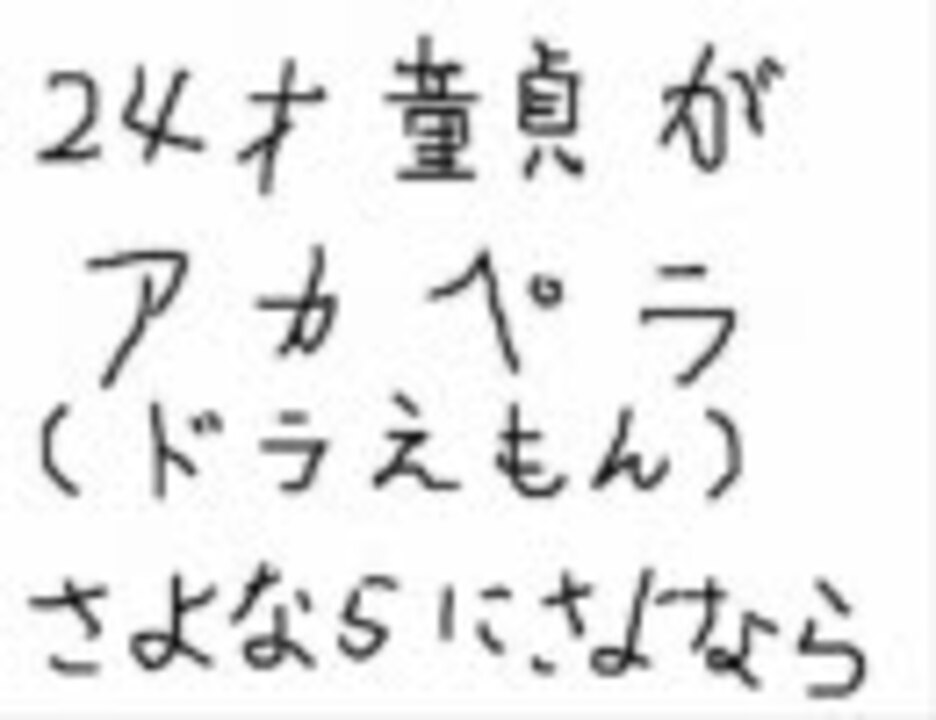 24才童貞が
アカペラ
(ドラえもん)
さよならにさよなら